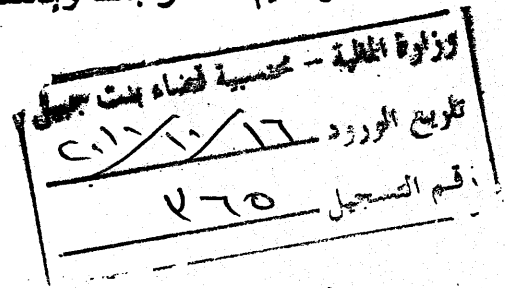 وزارة المالية - محتسبية قضاء بنت جبيل
تاريخ الورود ١٦/١٠/٢٠١٠
رقم التسجيل ٧٦٥